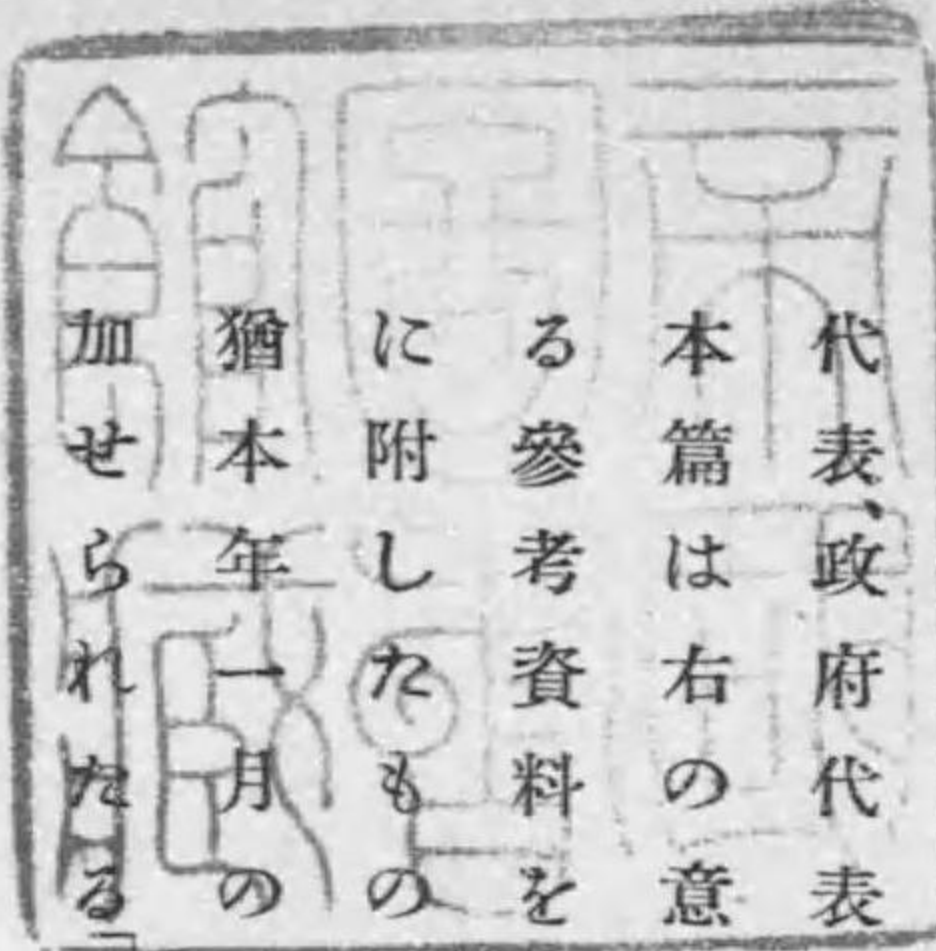 代表、政府代表
本篇は右の意
る參考資料を
に附したもの
猶本年一月の
加せられたる「